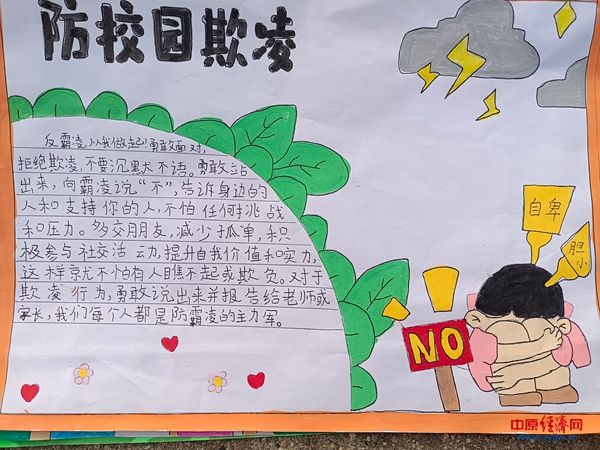 防校园欺凌
反霸凌,从我做起!勇敢面对,
拒绝欺凌,不要沉默不语。勇敢站
出来,向霸凌说“不”,告诉身边的
人和支持你的人,不怕任何挑战
和压力。多交朋友,减少孤单,积
极参与社交活动,提升自我价值和实力,
这样京尤不怕有人瞧不起或欺负。对于
欺凌行为,勇敢说出来并报告给老师或
家长,我们每个人都是防霸凌的主力军。
自卑
胆小
NO
中原经济网